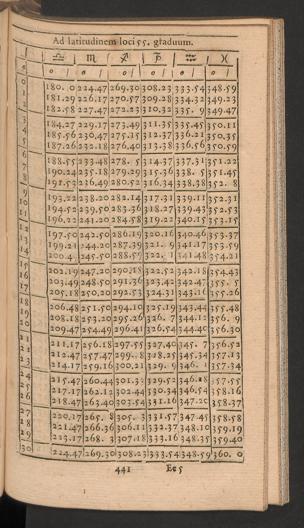 Ad latitudinem loci 55. graduum.
♎ ♏ ♐ ♑ ♒ ♓
0 180. 0 224.47 269.30 308.23 333.54 348.59
1 181.29 226.17 270.57 309.28 334.32 349.23
2 182.58 227.47 272.23 310.32 335. 9 349.47
3 184.27 229.17 273.49 311.35 335.45 350.11
4 185.56 230.47 275.15 312.37 336.21 350.35
5 187.26 232.18 276.40 313.38 336.56 350.59
6 188.55 233.48 278. 5 314.37 337.31 351.22
7 190.24 235.18 279.29 315.36 338. 5 351.45
8 191.53 236.49 280.52 316.34 338.38 352. 8
9 193.22 238.20 282.14 317.31 339.11 352.31
10 194.52 239.50 283.36 318.27 339.43 352.53
11 196.22 241.20 284.58 319.22 340.15 353.15
12 197.50 242.50 286.19 320.16 340.46 353.37
13 199.21 244.20 287.39 321. 9 341.17 353.59
14 200.4 245.50 288.59 322. 1 341.48 354.21
15 202.19 247.20 290.18 322.52 342.18 354.43
16 203.49 248.50 291.36 323.42 342.47 355. 5
17 205.18 250.20 292.53 324.31 343.16 355.26
18 206.48 251.50 294.10 325.19 343.44 355.48
19 208.18 253.20 295.26 326. 7 344.12 356. 9
20 209.47 254.49 296.41 326.54 344.40 356.30
21 211.17 256.18 297.55 327.40 345. 7 356.52
22 212.47 257.47 299. 8 328.25 345.34 357.13
23 214.17 259.16 300.21 329. 9 346. 1 357.34
24 215.47 260.44 301.33 329.52 346.28 357.55
25 217.17 262.12 302.44 330.34 346.54 358.16
26 218.47 263.40 303.54 331.16 347.20 358.37
27 220.17 265. 8 305. 3 331.57 347.45 358.58
28 221.47 266.36 306.11 332.37 348.10 359.19
29 223.17 268. 3 307.18 333.16 348.35 359.40
30 224.47 269.30 308.23 333.54 348.59 360. 0
441 Ee 5